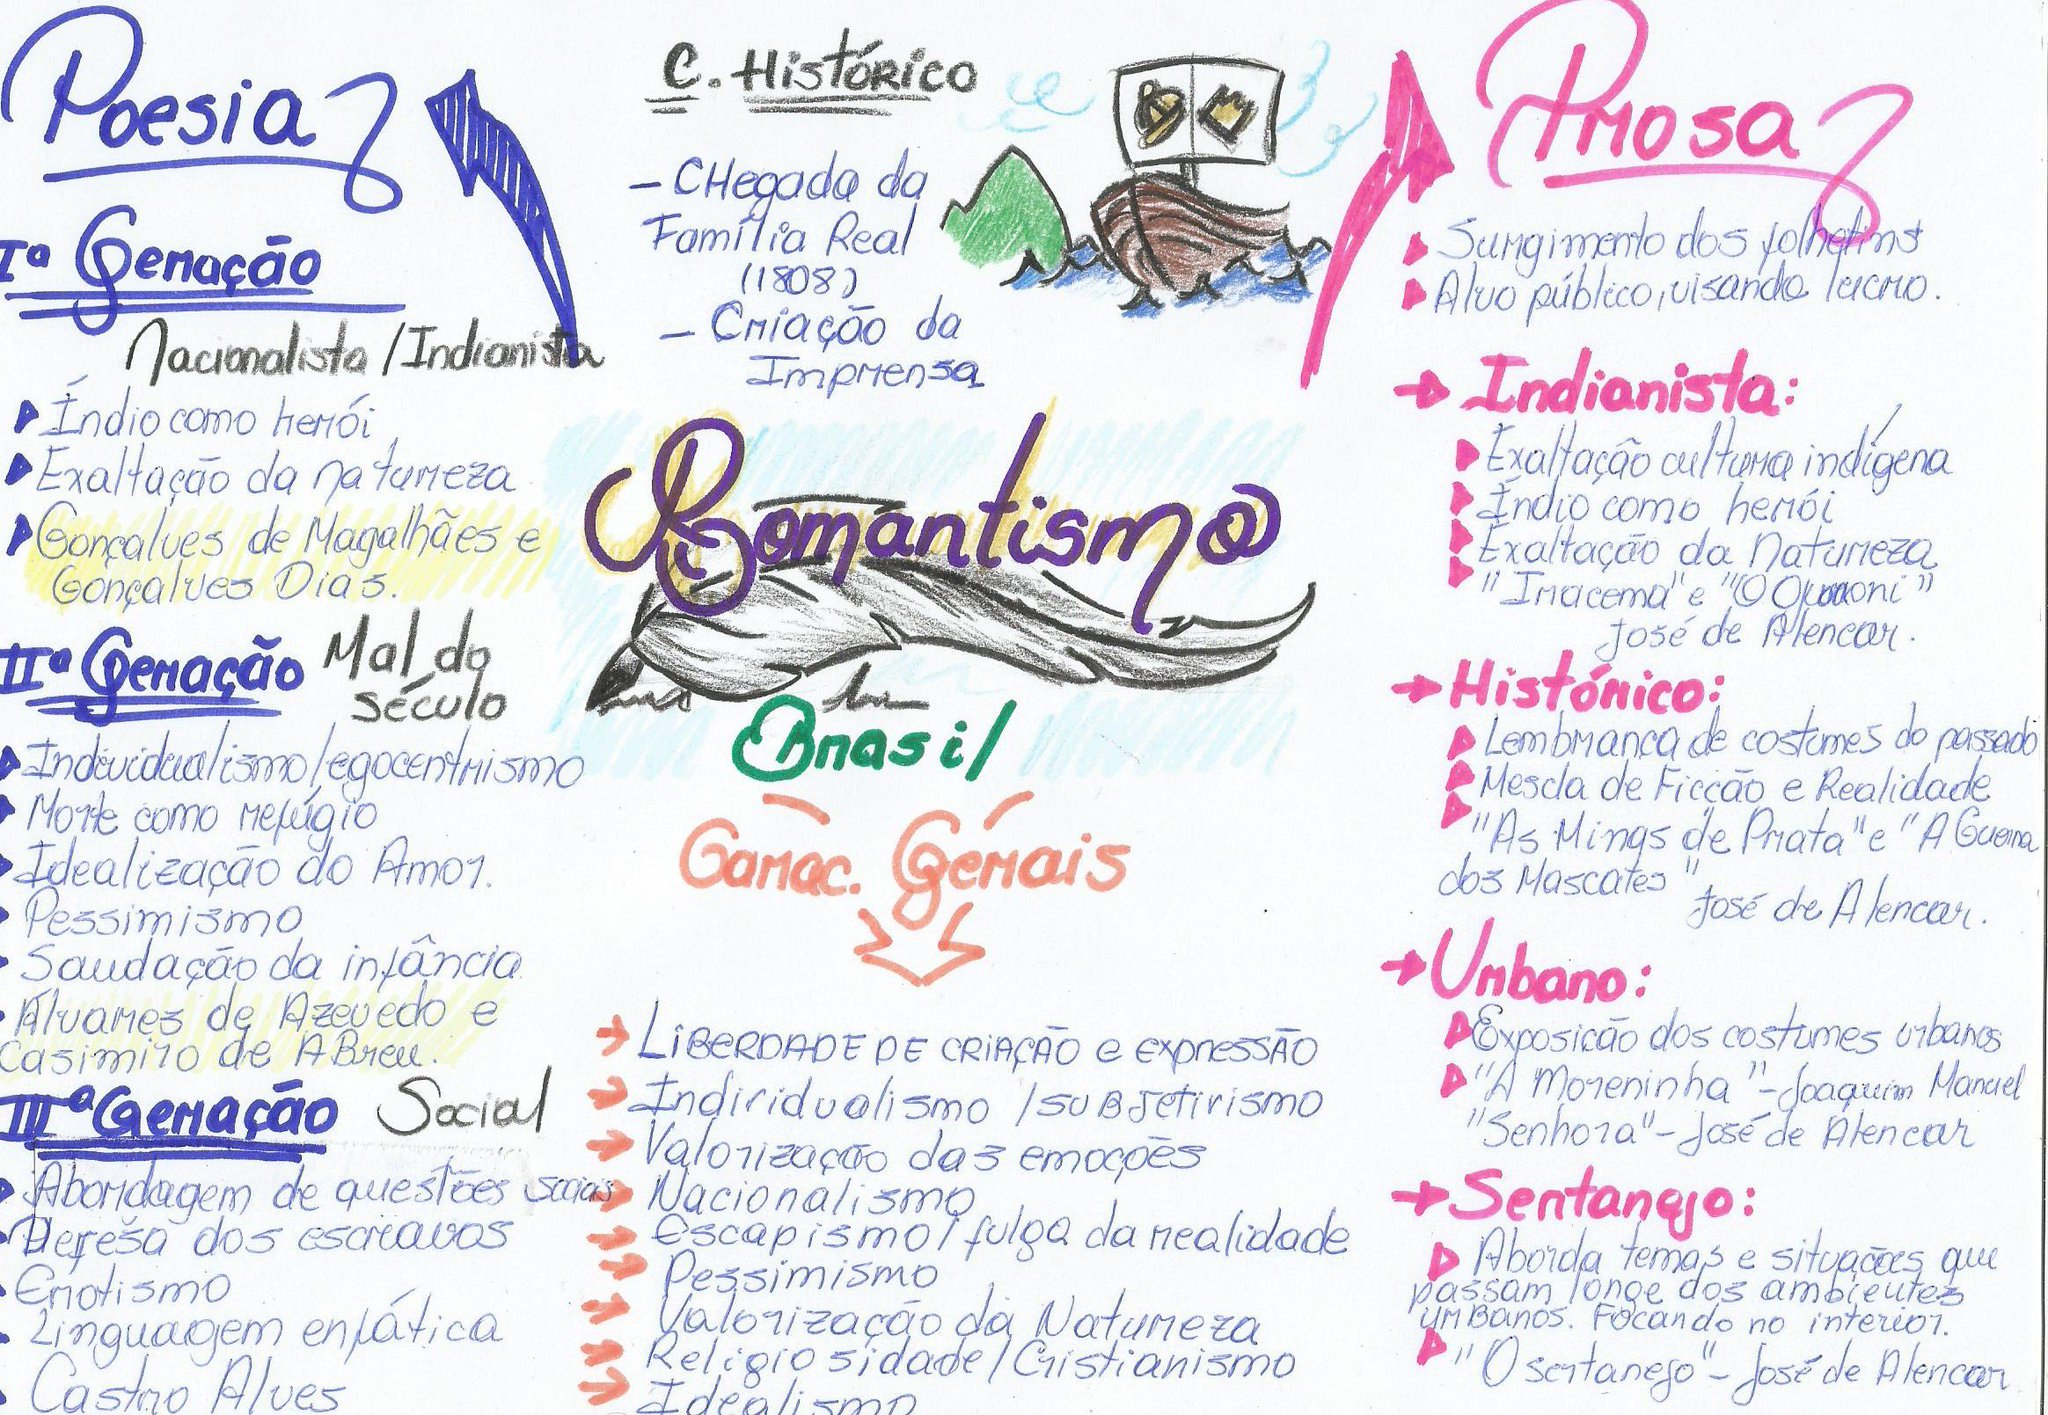 Poesia
Iª Geração
Nacionalista / Indianista
Índio como herói
Exaltação da natureza
Gonçalves de Magalhães e
Gonçalves Dias.
IIª Geração Mal do
século
Individualismo/egocentrismo
Morte como refúgio
Idealização do Amor.
Pessimismo
Saudação da infância
Álvares de Azevedo e
Casimiro de ABreu.
IIIª Geração Social
Abordagem de questões sociais
Defesa dos escravos
Erotismo
Linguagem enfática
Castro Alves
C. Histórico
- CHegada da
Família Real
(1808)
- Criação da
Imprensa
Romantismo
Brasil
Carac. Gerais
LIBERDADE DE CRIAÇÃO e EXPRESSÃO
Individualismo / SUBJETIVISMO
Valorização das emoções
Nacionalismo
Escapismo / fulga da realidade
Pessimismo
Valorização da Natureza
Religiosidade / Cristianismo
Idealismo
Prosa
Surgimento dos folhetins
Alvo público, visando lucro.
Indianista:
Exaltação cultura indígena
Índio como herói
Exaltação da Natureza
"Iracema" e "O Guarani"
José de Alencar.
Histórico:
Lembrança de costumes do passado
Mescla de Ficção e Realidade
"As Minas de Prata" e "A Guerra
dos Mascates"
José de Alencar.
Urbano:
Exposição dos costumes urbanos
"A Moreninha" - Joaquim Manuel
"Senhora" - José de Alencar
Sertanejo:
Aborda temas e situações que
passam longe dos ambientes
urBANOS. Focando no interior.
"O sertanejo" - José de Alencar